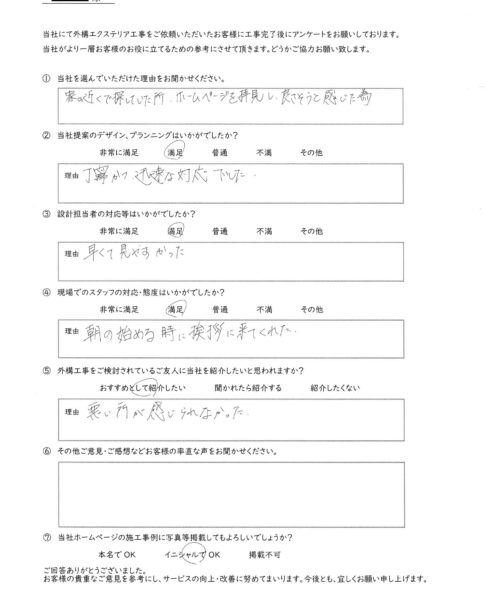 様
当社にて外構エクステリア工事をご依頼いただいたお客様に工事完了後にアンケートをお願いしております。
当社がより一層お客様のお役に立てるための参考にさせて頂きます。どうかご協力お願い致します。
① 当社を選んでいただけた理由をお聞かせください。
家の近くで探していた所、ホームページを拝見し、良さそうと感じた為
② 当社提案のデザイン、プランニングはいかがでしたか?
非常に満足 満足 普通 不満 その他
理由 丁寧かつ迅速な対応でした。
③ 設計担当者の対応等はいかがでしたか?
非常に満足 満足 普通 不満 その他
理由 早くて見やすかった
④ 現場でのスタッフの対応・態度はいかがでしたか?
非常に満足 満足 普通 不満 その他
理由 朝の始める時に挨拶に来てくれた。
⑤ 外構工事をご検討されているご友人に当社を紹介したいと思われますか?
おすすめとして紹介したい 聞かれたら紹介する 紹介したくない
理由 悪い所が感じられなかった。
⑥ その他ご意見・ご感想などお客様の率直な声をお聞かせください。
⑦ 当社ホームページの施工事例に写真等掲載してもよろしいでしょうか?
本名で OK イニシャルで OK 掲載不可
ご回答ありがとうございました。
お客様の貴重なご意見を参考にし、サービスの向上・改善に努めてまいります。今後とも、宜しくお願い申し上げます。